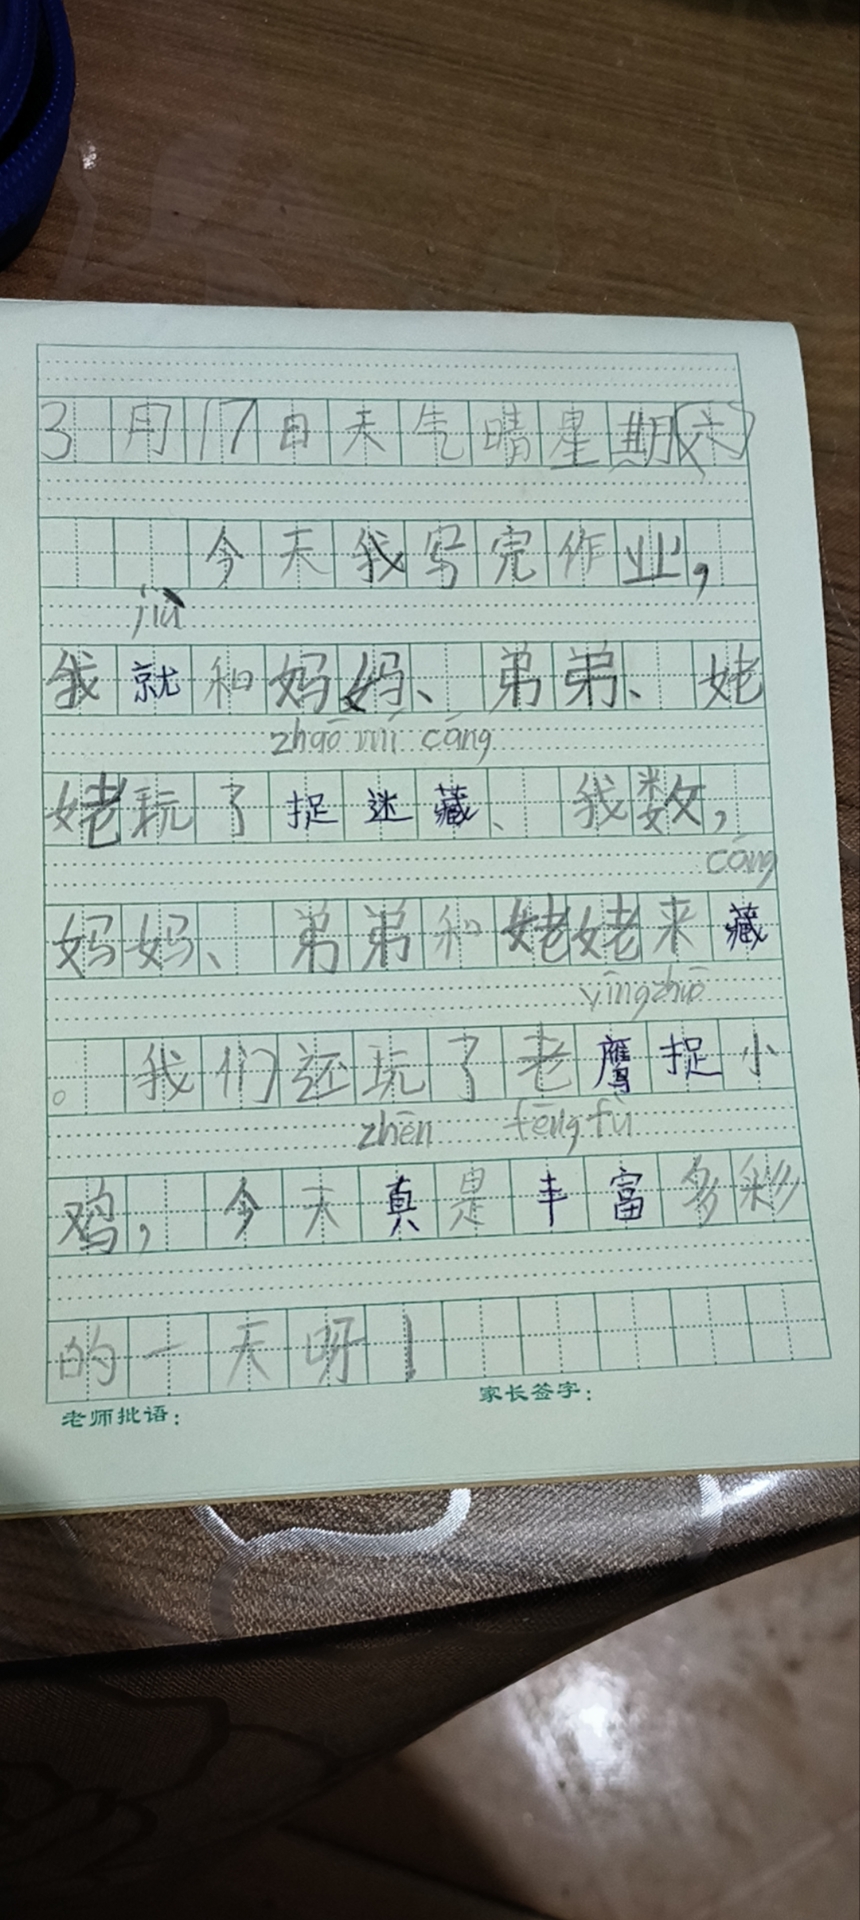 3月17日天气晴星期六
今天我写完作业，
jiù
我就和妈妈、弟弟、姥
zhuō mí cáng
姥玩了捉迷藏、我数，
cáng
妈妈、弟弟和姥姥来藏
yīng zhuō
。我们还玩了老鹰捉小
zhēn fēng fù
鸡，今天真是丰富多彩
的一天呀！
老师批语： 家长签字：